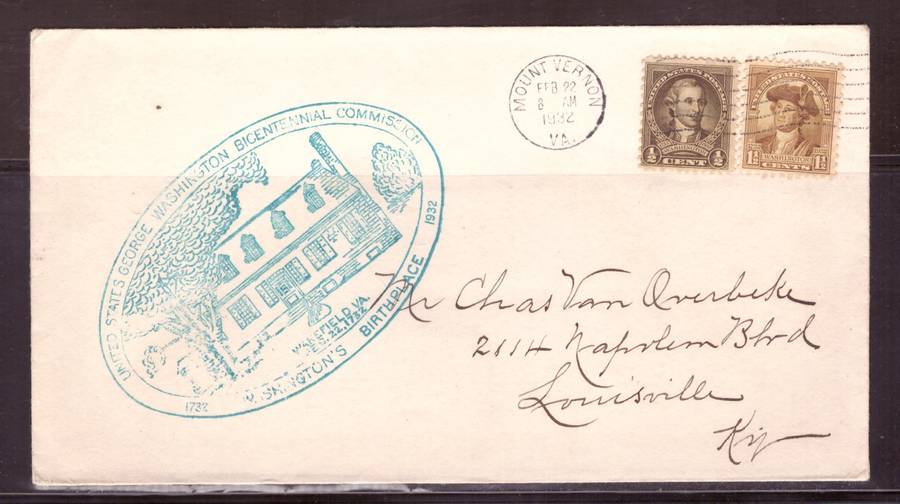 UNITED STATES GEORGE WASHINGTON BICENTENNIAL COMMISSION
WAKEFIELD, VA.
FEB. 22, 1732
WASHINGTON'S BIRTHPLACE
1732
1932
MOUNT VERNON
FEB 22
8 AM
1932
VA.
UNITED STATES POSTAGE
WASHINGTON
½ CENT ½
UNITED STATES POSTAGE
WASHINGTON
1½ CENTS 1½
Mr Chas Van Overbeke
2114 Napoleon Blvd
Louisville
Ky